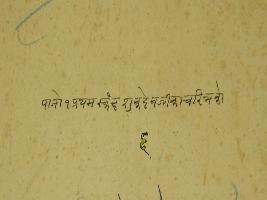 पानो १ प्रथम स्कंध शुकदेवजीका चरित्रको
६